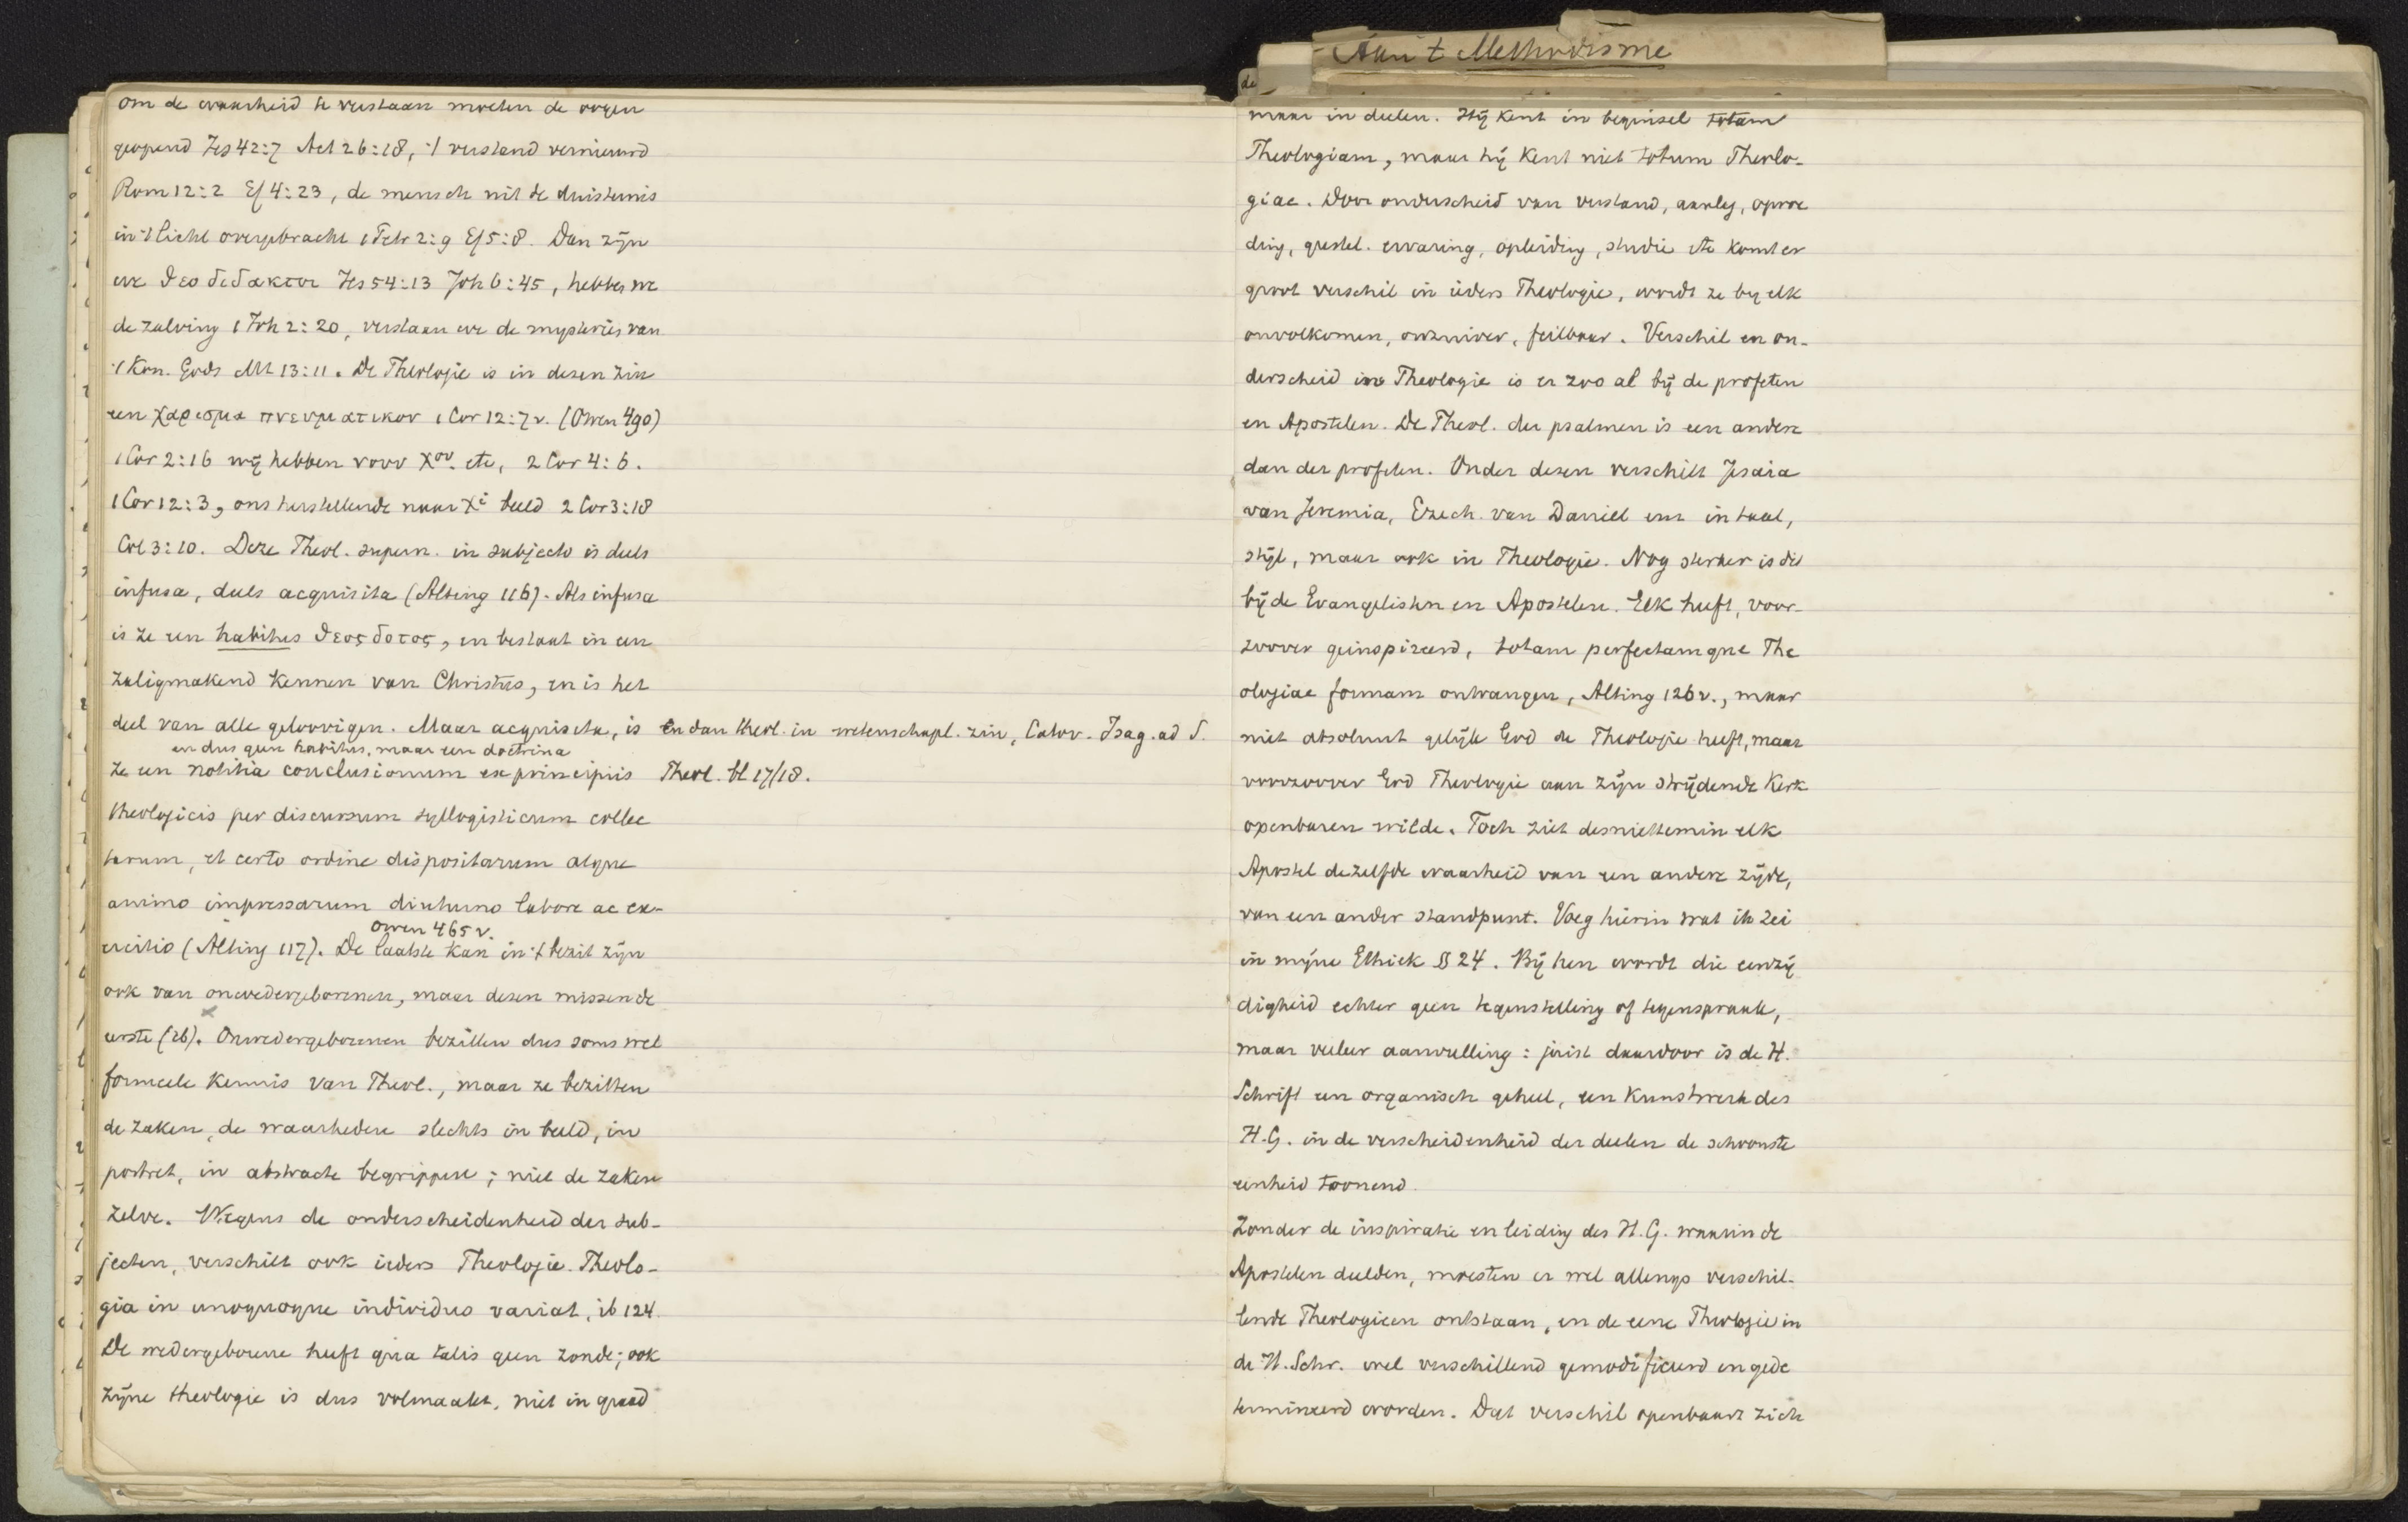 om de waarheid te verstaan moeten de oogen
geopend Jes 42:7 Act 26:18, 't verstand vernieuwd
Rom 12:2 Ef 4:23, de mensch uit de duisternis
in 't licht overgebracht 1 Petr 2:9 Ef 5:8. Dan zijn
we θεοδιδακτοι Jes 54:13 Joh 6:45, hebben we
de zalving 1 Joh 2:20, verstaan we de mysteries van
't Kon. Gods Mt 13:11. De Theologie is in dezen zin
een χαρισμα πνευματικον 1 Cor 12:7v. (Owen 490)
1 Cor 2:16 wij hebben νουν Χου. etc, 2 Cor 4:6.
1 Cor 12:3, ons herstellende naar Xi beeld 2 Cor 3:18
Col 3:10. Deze Theol. supern. in subjecto is deels
infusa, deels acquisita (Alting 116). Als infusa
is ze een habitus θεοςδοτος, en bestaat in een
zaligmakend kennen van Christus, en is het
deel van alle geloovigen. Maar acquisita, is En dan theol. in wetenschapl. zin, Calov. Isag. ad S.
en dus geen habitus, maar een doctrina
ze een notitia conclusionum ex principiis Theol. bl 17/18.
theologicis per discursum syllogisticum collec
tarum, et certo ordine dispositarum atque
animo impressarum diuturno labore ac ex-
Owen 465v.
ercitio (Alting 117). De laatste kan in 't bezit zijn
ook van onwedergeborenen, maar dezen missen de
eerste (ib). Onwedergeborenen bezitten dus soms wel
formeele kennis van Theol., maar ze bezitten
de zaken, de waarheden slechts in beeld, in
portret, in abstracte begrippen; niet de zaken
zelve. Wegens de onderscheidenheid der sub-
jecten, verschilt ook ieders Theologie. Theolo-
gia in unoquoque individuo variat, ib 124.
De wedergeborene heeft qua talis geen zonde; ook
zijne theologie is dus volmaakt, niet in graad
Aan 't Methodisme
de
maar in deelen. Hij kent in beginsel totam
Theologiam, maar hij kent niet totum Theolo-
giae. Door onderscheid van verstand, aanleg, opvoe
ding, geestel. ervaring, opleiding, studie etc komt er
groot verschil in ieders Theologie, wordt ze by elk
onvolkomen, onzuiver, feilbaar. Verschil en on-
derscheid in Theologie is er zoo al bij de profeten
en Apostelen. De Theol. der psalmen is een andere
dan der profeten. Onder dezen verschilt Jesaia
van Jeremia, Ezech. van Daniël enz in taal,
stijl, maar ook in Theologie. Nog sterker is dit
bij de Evangelisten en Apostelen. Elk heeft, voor-
zoover geinspireerd, totam perfectamque The
ologiae formam ontvangen, Alting 126v., maar
niet absoluut gelijk God de Theologie heeft, maar
voorzoover God Theologie aan zijn strijdende Kerk
openbaren wilde. Toch ziet desniettemin elk
Apostel dezelfde waarheid van een andere zijde,
van een ander standpunt. Voeg hierin wat ik zei
in mijne Ethiek § 24. Bij hen wordt die eenzij
digheid echter geen tegenstelling of tegenspraak,
maar veeleer aanvulling: juist daardoor is de H.
Schrift een organisch geheel, een Kunstwerk des
H.G. in de verscheidenheid der deelen de schoonste
eenheid toonend.
Zonder de inspiratie en leiding des H.G. waarin de
Apostelen deelden, moesten er wel allengs verschil-
lende Theologieen ontstaan, en de eene Theologie in
de H. Schr. wel verschillend gemodificeerd en gede
termineerd worden. Dat verschil openbaart zich